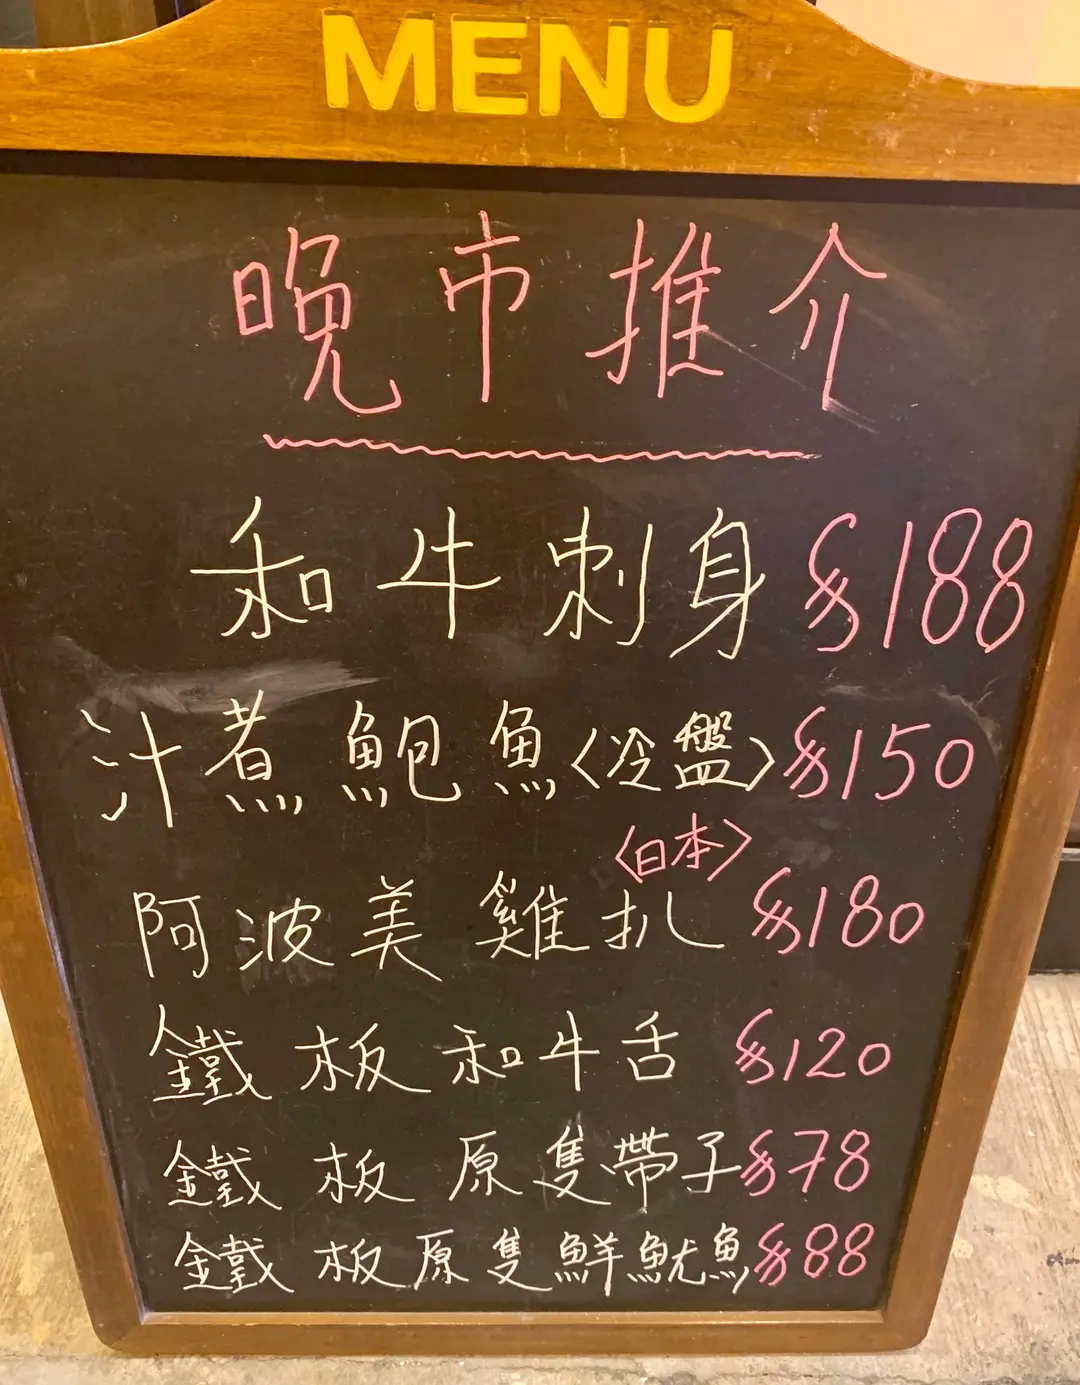 MENU
晚市推介
和牛刺身 $188
汁煮鮑魚〈冷盤〉$150
〈日本〉
阿波美雞扒 $180
鐵板和牛舌 $120
鐵板原隻帶子 $78
鐵板原隻鮮魷魚 $88